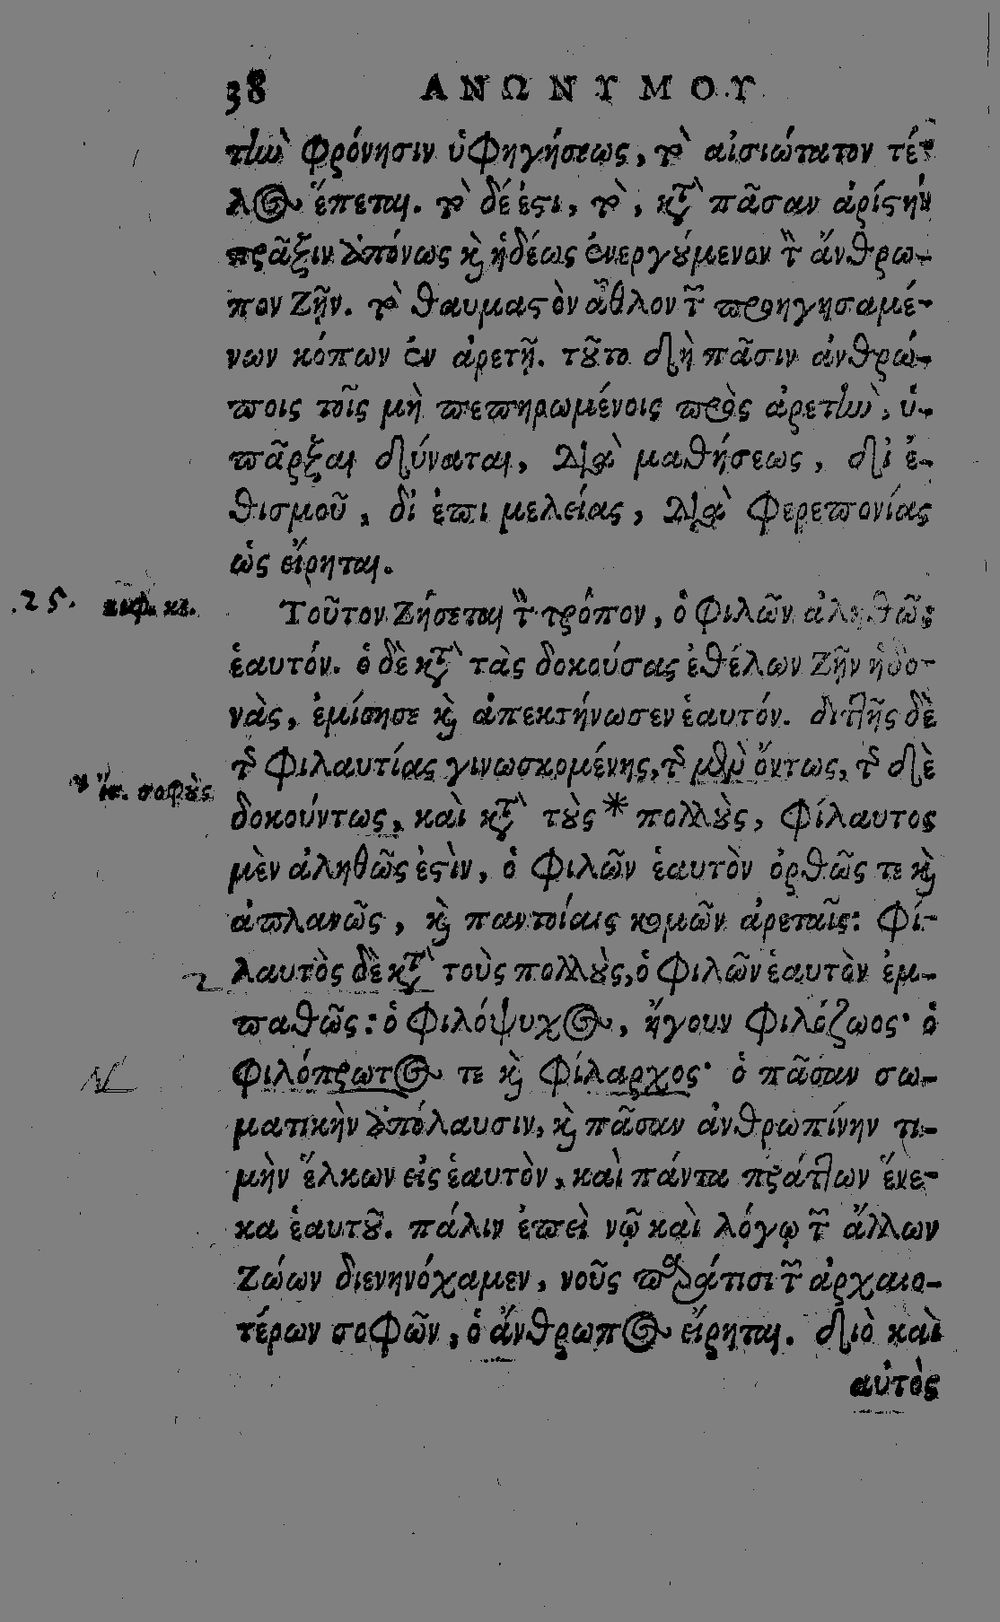 38 ΑΝΩΝΥΜΟΥ
τὴν φρόνησιν ὑφηγήσεως, τὸ αἰσιώτατον τέ-
λος ἕπεται. τὸ δέ ἐστι, τὸ, κατὰ πᾶσαν ἀρίστην
πρᾶξιν ἀπόνως καὶ ἡδέως ἐνεργούμενον τὸν ἄνθρω-
πον ζῆν. τὸ θαυμαστὸν ἆθλον τῶν προηγησαμέ-
νων κόπων ἐν ἀρετῇ. τοῦτο δὴ πᾶσιν ἀνθρώ-
ποις τοῖς μὴ πεπηρωμένοις πρὸς ἀρετὴν, ὑ-
πᾶρξαι δύναται, διὰ μαθήσεως, δι ἐ-
θισμοῦ, δι ἐπιμελείας, διὰ φερεπονίας
ὡς εἴρηται.
25. κεφ. κε.
Τοῦτον ζήσεται τὸν τρόπον, ὁ φιλῶν ἀληθῶς
ἑαυτόν. ὁ δὲ κατὰ τὰς δοκούσας ἐθέλων ζῆν ἡδο-
νὰς, ἐμίσησε καὶ ἀπεκτήνωσεν ἑαυτόν. διττῆς δὲ
τῆς φιλαυτίας γινωσκομένης, τῆς μὲν ὄντως, τῆς δὲ
* ἴσ. σοφοὺς
δοκούντως, καὶ κατὰ τοὺς * πολλοὺς, φίλαυτος
μὲν ἀληθῶς ἐστὶν, ὁ φιλῶν ἑαυτὸν ὀρθῶς τε καὶ
ἀπλανῶς, καὶ παντοίαις κοσμῶν ἀρεταῖς: φί-
λαυτὸς δὲ κατὰ τοὺς πολλοὺς, ὁ φιλῶν ἑαυτὸν ἐμ-
παθῶς: ὁ φιλόψυχος, ἤγουν φιλόζωος· ὁ
φιλόπρωτος τε καὶ φίλαρχος· ὁ πᾶσαν σω-
ματικὴν ἀπόλαυσιν, καὶ πᾶσαν ἀνθρωπίνην τι-
μὴν ἕλκων εἰς ἑαυτὸν, καὶ πάντα πράττων ἕνε-
κα ἑαυτοῦ. πάλιν ἐπεὶ νῷ καὶ λόγῳ τῶν ἄλλων
ζώων διενηνόχαμεν, νοῦς παρά τισι τῶν ἀρχαιο-
τέρων σοφῶν, ὁ ἄνθρωπος εἴρηται. διὸ καὶ
αὐτὸς